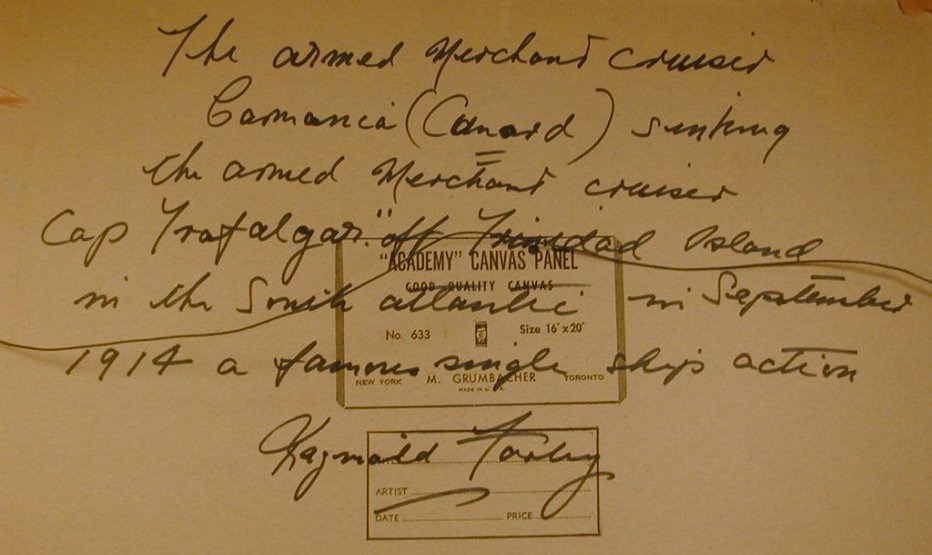 The armed Merchant cruiser
Carmania (Cunard) sinking
the armed Merchant cruiser
Cap Trafalgar" off Trinidad Island
"ACADEMY" CANVAS PANEL
GOOD QUALITY CANVAS
in the South atlantic in September
No. 633 Size 16" x 20"
1914 a famous single ship action
NEW YORK M. GRUMBACHER TORONTO
MADE IN U.S.A.
ARTIST
DATE PRICE